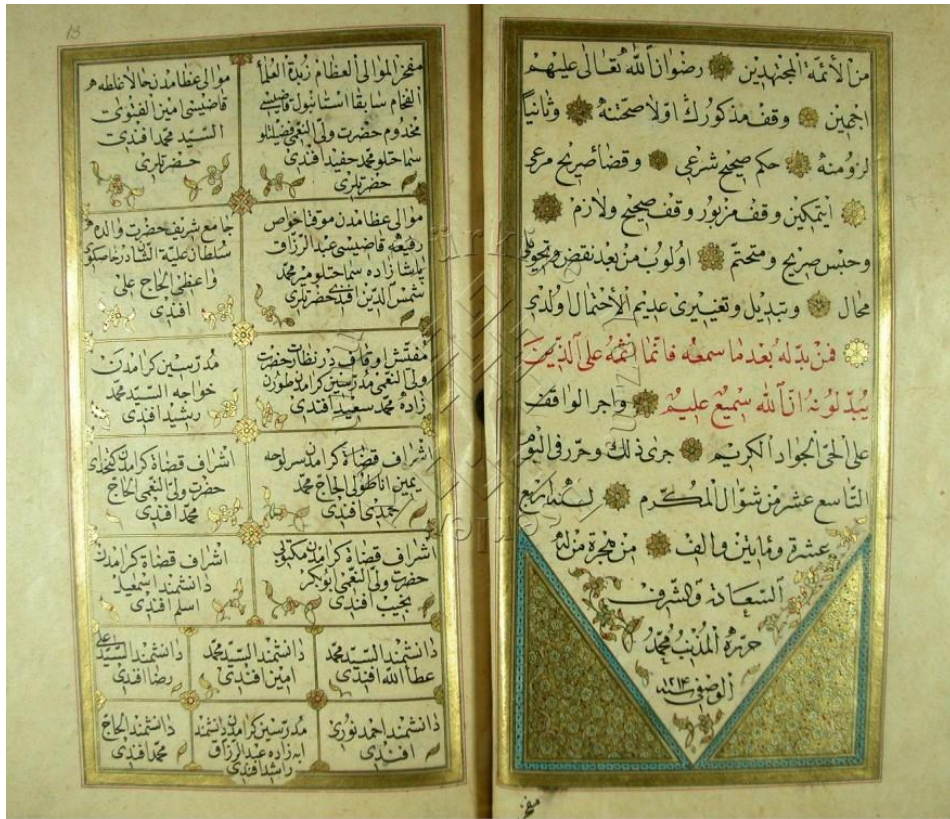 من الأئمة المجتهدين رضوان الله تعالى عليهم
اجمعين وقف مذكورك اولا صحتنه وثانياً
لزومنه حكم صحيح شرعى وقضاء صريح مرعى
ايتمكين وقف مزبور وقف صحيح ولازم
وحبس صريح ومتحتم اولوب من بعد نقض وتحويلى
محال وتبديل وتغييرى عديم الاحتمال ولدى
فمن بدله بعد ما سمعه فانما اثمه على الذين
يبدلونه ان الله سميع عليم واجر الواقف
على الحى الجواد الكريم جرى ذلك وحرر فى اليوم
التاسع عشر من شوال المكرم لسنة اربع
عشرة ومايتين والف من هجرة من له
السعادة والشرف
حرره المذنب محمد
الوصفى سنه ١٢١٤
13
مفخر الموالى العظام زبدة العلماء
الفخام سابقا استانبول قاضيسى
مخدوم حضرت ولى النعمى فضيلتلو
سماحتلو محمد حفيد افندى
حضرتلرى
موالى عظامدن حالا غلطه
قاضيسى امين الفتوى
السيد محمد افندى
حضرتلرى
موالى عظامدن موقتا خواص
رفيعه قاضيسى عبد الرزاق
پاشا زاده سماحتلو مير محمد
شمس الدين افندى حضرتلرى
جامع شريف حضرت والده
سلطان علية الشان
واعظى الحاج على
افندى
مفتش اوقاف در نظارت حضرت
ولى النعمى مدرسين كرامدن طورن
زاده محمد سعيد افندى
مدرسين كرامدن
خواجه السيد محمد
رشيد افندى
اشراف قضاة كرامدن سرلوحه
يمين اناطولى الحاج محمد
حمدى افندى
اشراف قضاة كرامدن كتخداى
حضرت ولى النعمى الحاج
محمد افندى
اشراف قضاة كرامدن مكتوبى
حضرت ولى النعمى ابو بكر
نجيب افندى
اشراف قضاة كرامدن
دانشمند اسمعيل
اسلم افندى
دانشمند السيد محمد
عطا الله افندى
دانشمند السيد محمد
امين افندى
دانشمند السيد على
رضا افندى
دانشمند احمد نورى
افندى
مدرسين كرامدن دانشمند
زاده عبد الرزاق
راشد افندى
دانشمند الحاج
محمد افندى
مفخر